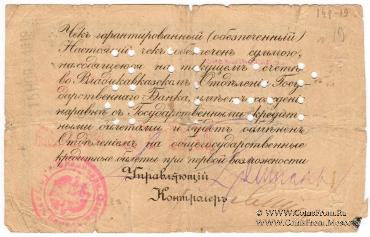 149-19
Чекъ гарантированный (обезпеченный)
Настоящій чекъ обезпеченъ суммою,
находящеюся на текущемъ счетѣ
во Владикавказскомъ Отдѣленіи Госу-
дарственнаго Банка, имѣетъ хожденіе
наравнѣ съ Государственными кредит-
ными билетами и будетъ обмѣненъ
Отдѣленіемъ на общегосударственные
кредитные билеты при первой возможности
Управляющій
Контролеръ
www.CoinsFromS.Ru